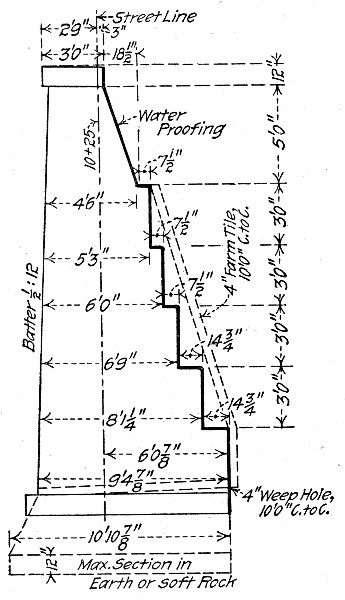 Street Line
2'9"
3"
3'0"
18½"
12"
Water
Proofing
10+25
5'0"
7½"
4'6"
7½"
3'0"
5'3"
4" Farm Tile,
10'0" C. to C.
7½"
3'0"
6'0"
Batter ½:12
14¾"
3'0"
6'9"
14¾"
3'0"
8'1¼"
6'0⅞"
9'4⅞"
4" Weep Hole,
10'0" C. to C.
10'10⅞"
12"
Max. Section in
Earth or Soft Rock